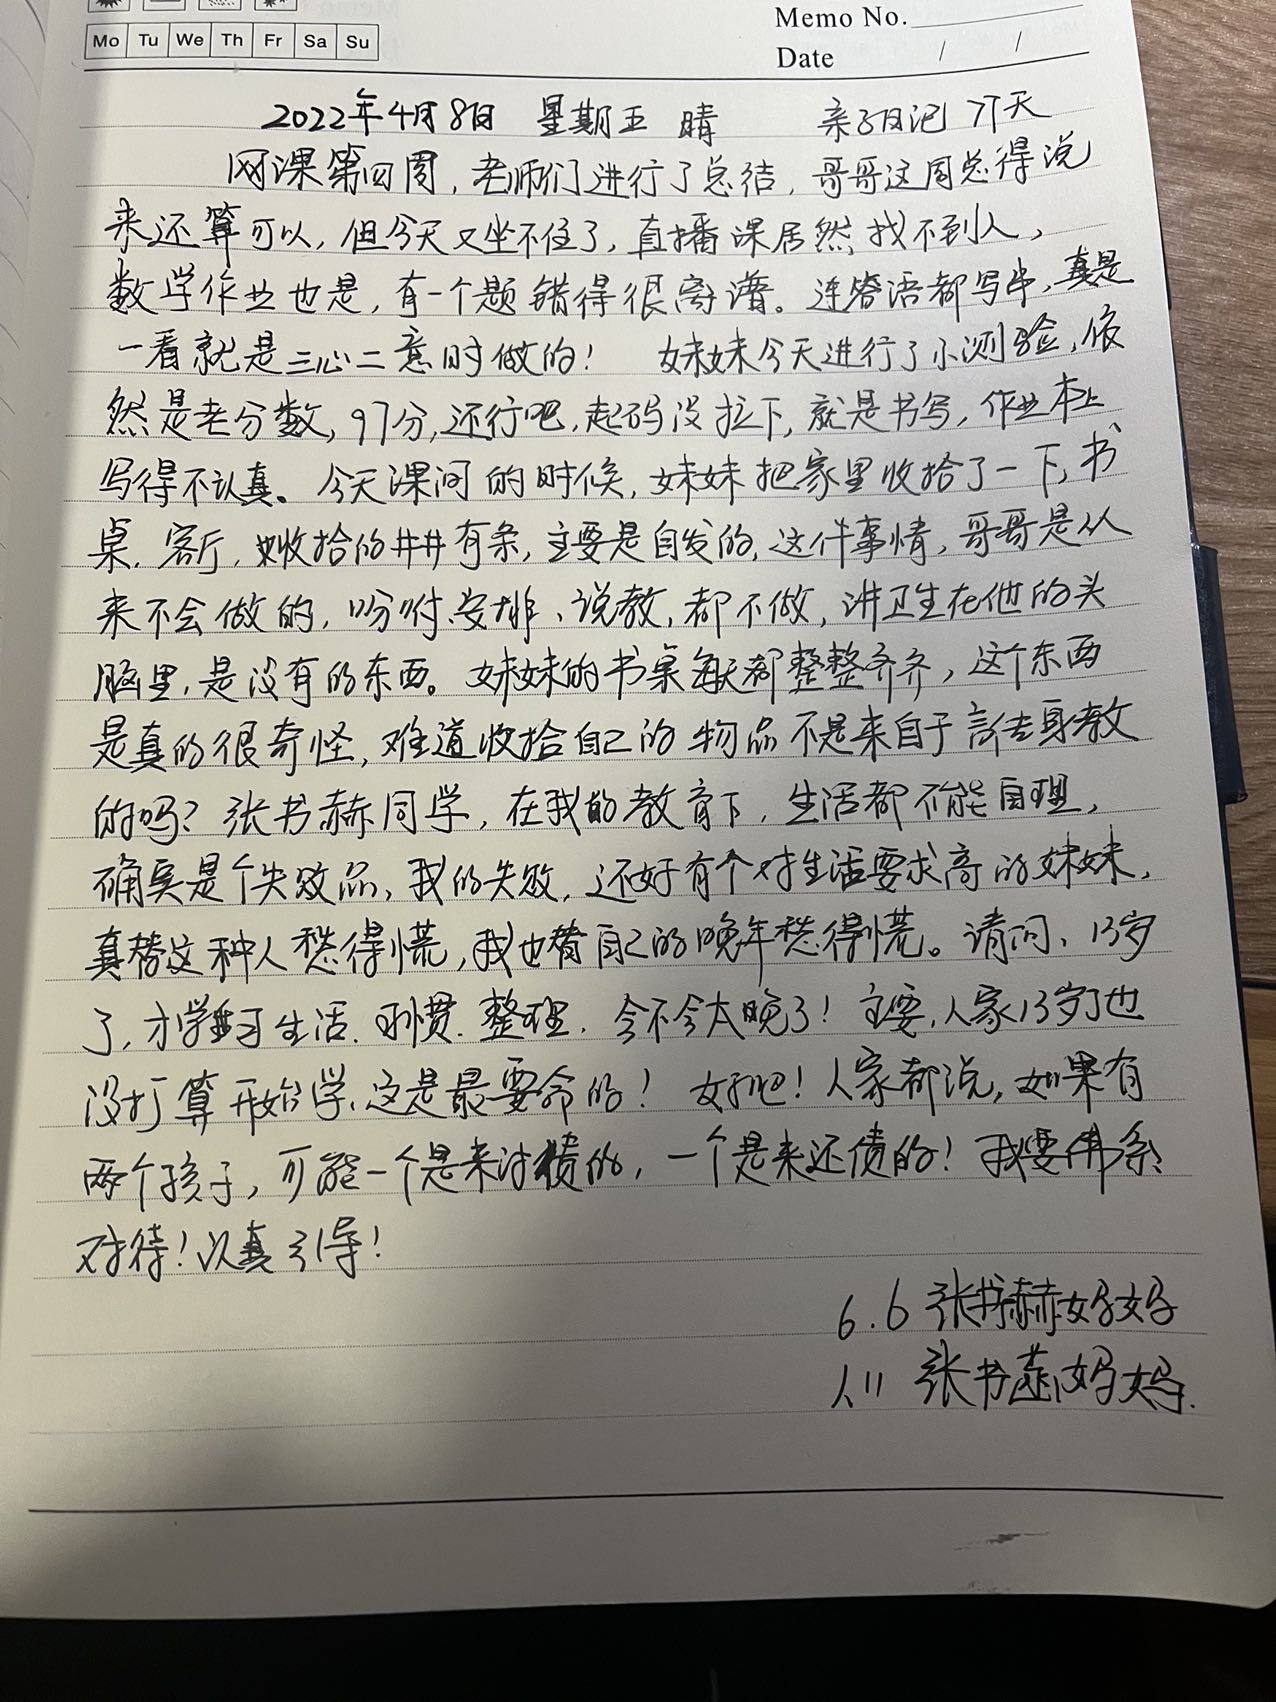 Mo Tu We Th Fr Sa Su
Memo No.
Date / /
2022年4月8日 星期五 晴 亲子日记 77天
网课第四周，老师们进行了总结，哥哥这周总得说
来还算可以，但今天又坐不住了，直播课居然找不到人，
数学作业也是，有一个题错得很离谱。连答语都写串，真是
一看就是三心二意时做的！ 妹妹今天进行了小测验，依
然是老分数，97分，还行吧，起码没拉下，就是书写，作业本上
写得不认真。今天课间的时候，妹妹把家里收拾了一下，书
桌、客厅，她收拾的井井有条，主要是自发的，这件事情，哥哥是从
来不会做的，吩咐、安排、说教，都不做，讲卫生在他的头
脑里，是没有的东西。妹妹的书桌每天都整整齐齐，这个东西
是真的很奇怪，难道收拾自己的物品不是来自于言传身教
的吗？张书赫同学，在我的教育下，生活都不能自理，
确实是个失败品，我的失败，还好有个对生活要求高的妹妹，
真替这种人愁得慌，我也替自己的晚年愁得慌。请问、13岁
了，才学习生活、习惯、整理，会不会太晚了！主要，人家13岁了也
没打算开始学，这是最要命的！好吧！人家都说，如果有
两个孩子，可能一个是来讨债的，一个是来还债的！我要佛系
对待！认真引导！
6.6 张书赫妈妈
张书 妈妈